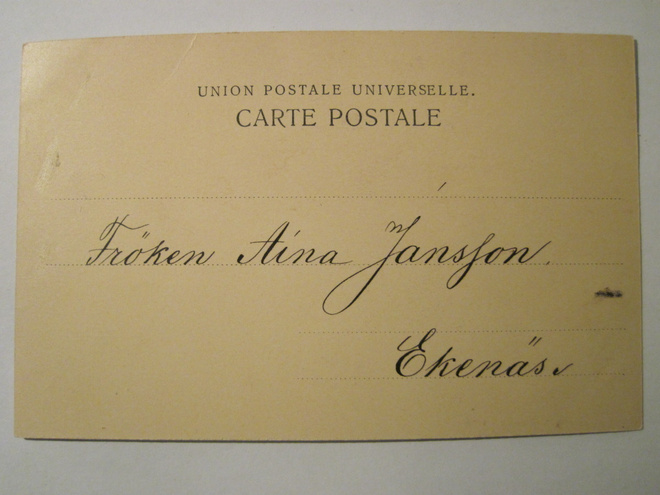 UNION POSTALE UNIVERSELLE.
CARTE POSTALE
Fröken Aina Jansson.
Ekenäs.